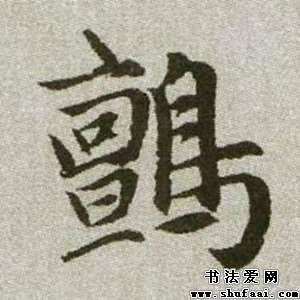 鸇
书法爱网
www.shufaai.com